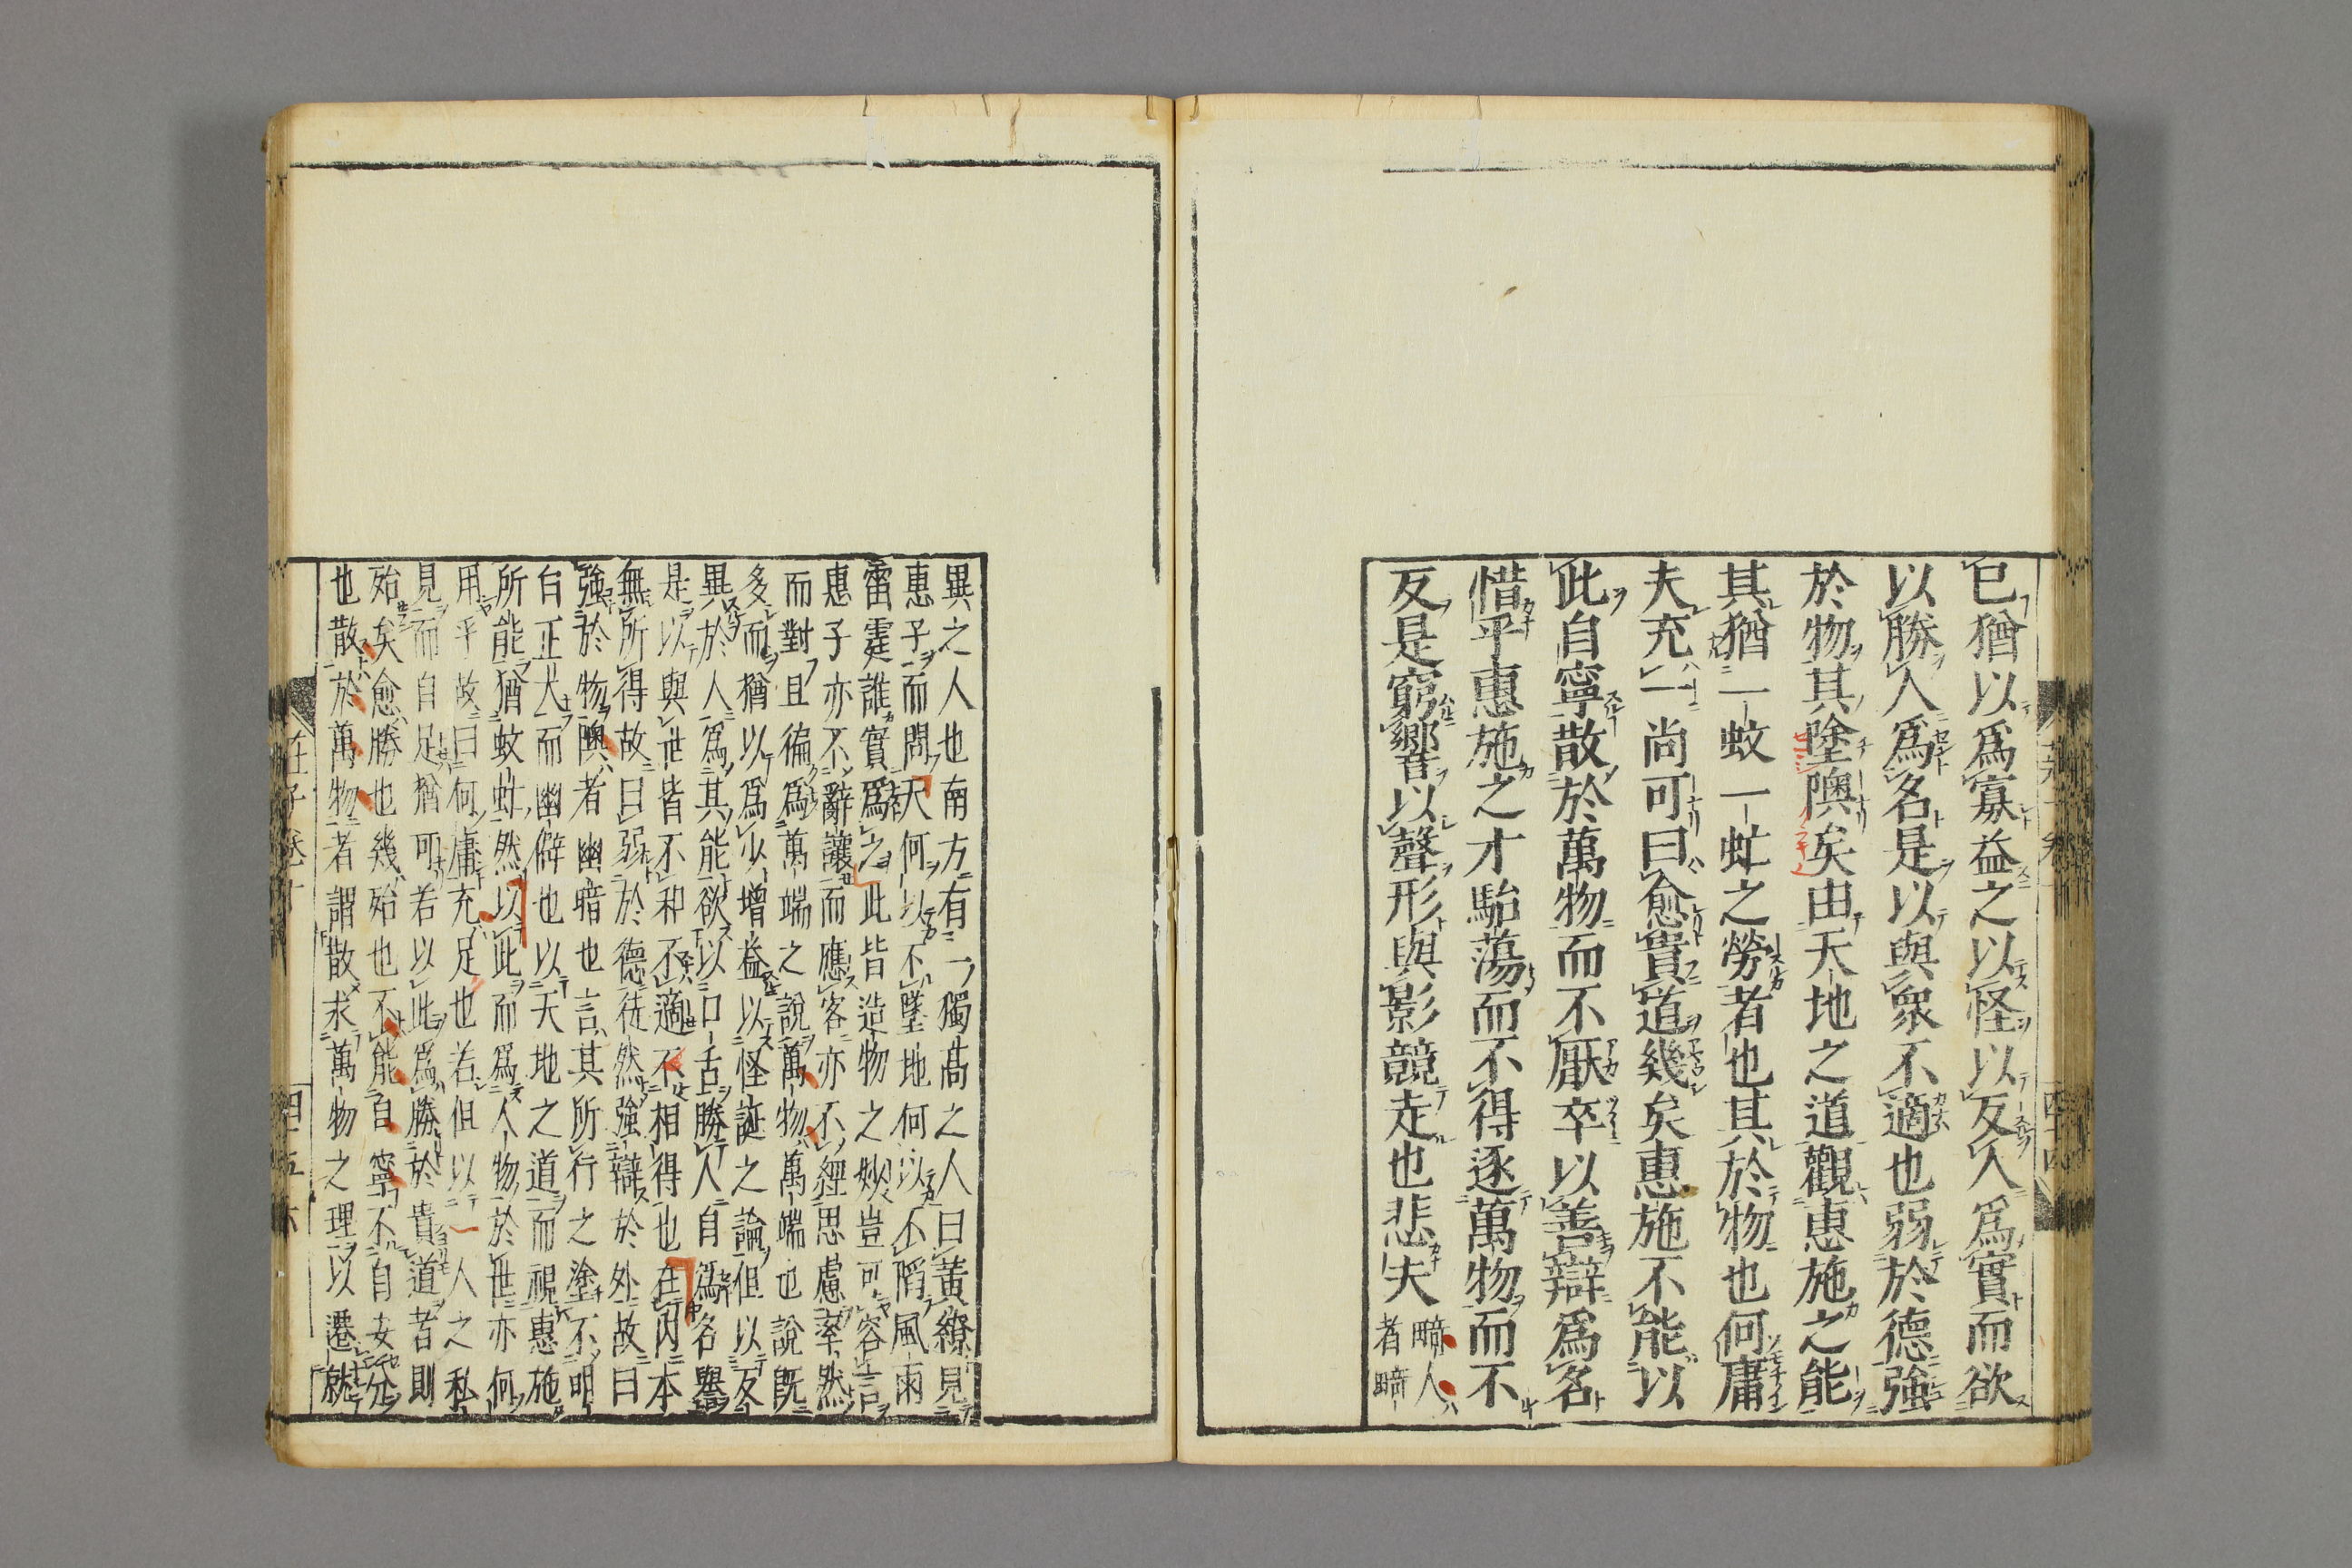 已猶以爲寡益之以怪以反人爲實而欲
以勝人爲名是以與衆不適也弱於德強
於物其塗隩矣由天地之道觀惠施之能
其猶一蚊一虻之勞者也其於物也何庸
夫充一尚可曰愈貴道幾矣惠施不能以
此自寧散於萬物而不厭卒以善辯爲名
惜乎惠施之才駘蕩而不得逐萬物而不
反是窮響以聲形與影競走也悲夫
畸人
者畸
異之人也南方有一獨高之人曰黃繚見
惠子而問天何以不墜地何以不陷風雨
雷霆誰實爲之此皆造物之妙豈可容言
惠子亦不辭讓而應客亦不經思慮率然
而對且徧爲萬端之說萬物萬端也說既
多而猶以爲少增益以怪誕之論但以反
異於人爲其能欲以口舌勝人自爲名譽
是以與世皆不和不適不相得也在內本
無所得故曰弱於德徒然強辯於外故曰
強於物隩者幽暗也言其所行之塗不明
白正大而幽僻也以天地之道而視惠施
所能猶蚊虻然以此而爲人物於世亦何
用乎故曰何庸充足也若但以一人之私
見而自足猶可若以此爲勝於貴道者則
殆矣愈勝也幾殆也不能自寧不自安分
也散於萬物者謂散求萬物之理以遷就
莊子卷十
四十五